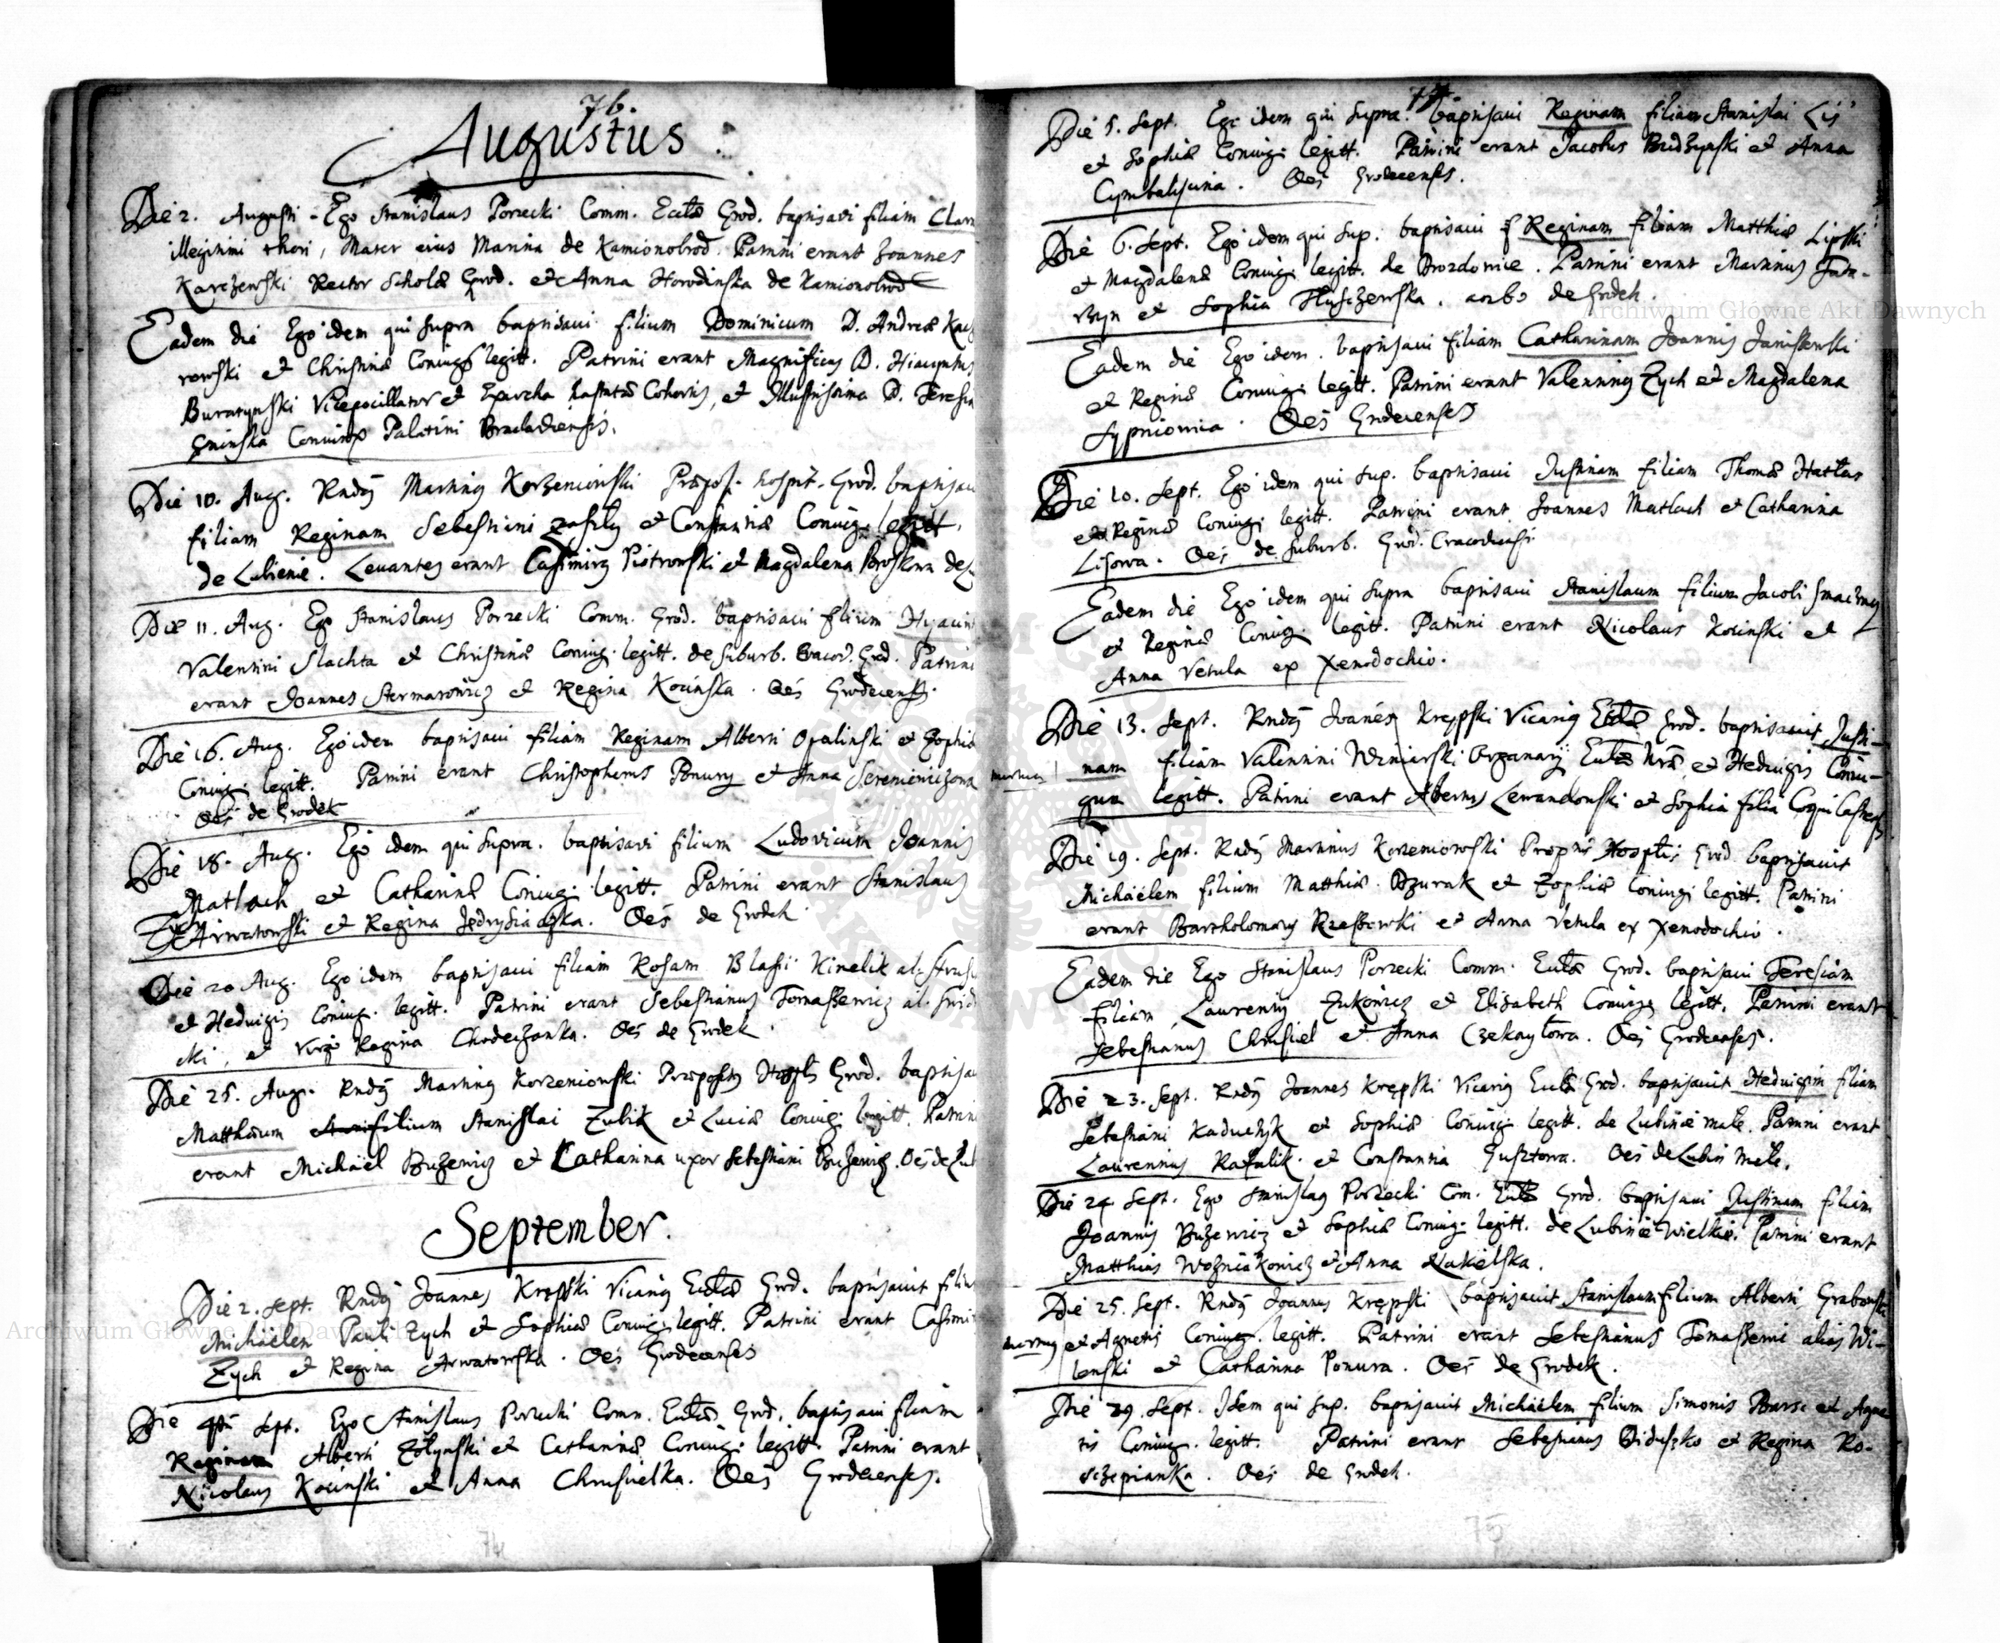 76.
Augustus.
Die 2. Augusti - Ego Stanislaus Porzecki Comm. Eccłae Grod. baptisavi filiam Clar
illegitimi thori, Mater eius Marina de Kamionobrod. Patrini erant Joannes
Karczewski Rector Scholae Grod. et Anna Horodinska de Kamionobrod
Eadem die Ego idem qui supra baptisavi filium Dominicum D. Andreae
rowski et Christinae Coniugs legitt. Patrini erant Magnificus D. Hiacynthus
Buratynski Vicepocillator et Exarcha hastatae Cohortis, et Illustrissima D. Teresia
Gninska Coniunx Palatini Bracladiensis.
Die 10. Aug. Rndg Marting Korzeniowski Praepos. hospit. Grod. baptisav
filiam Reginam Sebestiani et Constantiae Coniug. legitt.
de Lubienie. Levantes erant Casimirg Piotrowski et Magdalena
Die 11. Aug. Ego Stanislaus Porzecki Comm. Grod. baptisavi filium Hyacin
Valentini Slachta et Christinae Coniug. legitt. de suburb. Cracov. Grod. Patrini
erant Joannes Stermarowicz et Regina Kocinska. Oes Grodecenses.
Die 16. Aug. Ego idem baptisavi filiam Reginam Alberti Opalinski et Zophiae
Coniug. legitt. Patrini erant Christophorus Ponury et Anna
Oes de Grodek
Die 18. Aug. Ego idem qui supra. baptisavi filium Ludovicum Joannis
Matlach et Catharinae Coniug. legitt. Patrini erant Stanislaus
Arwatowski et Regina Jędrysiaczka. Oes de Grodek
Die 20 Aug. Ego idem baptisavi filiam Rosam Blasii Kinelik al.
et Hedvigis Coniug. legitt. Patrini erant Sebestianus Tomaszewicz al.
cki, et Virgo Regina Chodeczanka. Oes de Grodek.
Die 25. Aug. Rndg Marting Korzeniowski Praepositg Grod. baptisav
Matthaeum filium Stanislai Zubik et Luciae Coniug. legitt. Patrini
erant Michael Buzewicz et Catharina uxor Sebestiani Buzewicz. Oes de Lub
September.
Die 2. Sept. Rndg Joannes Krępski Vicarig Eccłae Grod. baptisavit filiu
Michaelem Pauli Zych et Sophiae Coniug. legitt. Patrini erant Casimir
Zych et Regina Arwatowska. Oes Grodecenses
Die 4ta Sept. Ego Stanislaus Porzecki Comm. Eccłae Grod. baptisavi filiam
Reginam Alberti Zołynski et Catharinae Coniug. legitt. Patrini erant
Nicolaus Kocinski et Anna Chrusielka. Oes Grodecenses.
74
77
Die 5. Sept. Ego idem qui supra. baptisavi Reginam filiam Stanislai Lis
et Sophiae Coniug. legitt. Patrini erant Jacobus Budzynski et Anna
Cymbalisina. Oes Grodecenses.
Die 6. Sept. Ego idem qui sup. baptisavi Reginam filiam Matthiae Lipski
et Magdalenae Coniug. legitt. de Drozdowice. Patrini erant Martinus
et Sophia Hyszczewska. ambo de Grodek.
Eadem die Ego idem. baptisavi filiam Catharinam Joannis Janiszewski
et Reginae Coniug. legitt. Patrini erant Valentinq Zych et Magdalena
Sypniowna. Oes Grodecenses
Die 10. Sept. Ego idem qui sup. baptisavi Justinam filiam Thomae
et Reginae Coniug. legitt. Patrini erant Joannes Matlach et Catharina
Lisowa. Oes de suburb. Grod. Cracoviensi
Eadem die Ego idem qui supra baptisavi Stanislaum filium Jacobi Smaczny
et Reginae Coniug. legitt. Patrini erant Nicolaus Kocinski et
Anna Vetula ex Xenodochio.
Die 13. Sept. Rndg Joanes Krępski Vicarig Eccłae Grod. baptisavit Justi-
nam filiam Valentini Winiarski Organarij Eccłae Nrae, et Hedvigis Coniu-
gum legitt. Patrini erant Albertus Lewandowski et Sophia filia Coqui
Die 19. Sept. Rndg Martinus Korzeniowski Grod. baptisavit
Michaelem filium Matthiae Bzurak et Zophiae Coniug. legitt. Patrini
erant Bartholomaeus Rzeszowski et Anna Vetula ex Xenodochio.
Eadem die Ego Stanislaus Porzecki Comm. Eccłae Grod. baptisavi Teresiam
filiam Laurentij Zukowicz et Elisabeth Coniug. legitt. Patrini erant
Sebestianus Chrusiel et Anna Czekayłowa. Oes Grodecenses.
Die 23. Sept. Rndg Joannes Krępski Vicarig Eccłae Grod. baptisavit Hedvigim filiam
Sebestiani Kaduczyk et Sophiae Coniug. legitt. de Lubinie małe. Patrini erant
Laurentius Rafalik et Constantia Gusztowa. Oes de Lubin małe.
Die 24. Sept. Ego Stanislaus Porzecki Com. Eccłae Grod. baptisavi Justinam filiam
Joannis Buzewicz et Sophiae Coniug. legitt. de Lubinie Wielkie. Patrini erant
Matthias Wozniakowicz et Anna Nakielska.
Die 25. Sept. Rndg Joannes Krępski baptisavit Stanislaum filium Alberti Grabowski
et Agnetis Coniug. legitt. Patrini erant Sebestianus Tomaszewi alias Wi-
lenski et Catharina Ponura. Oes de Grodek.
Die 29. Sept. Idem qui sup. baptisavit Michaelem filium Simonis et Agne
tis Coniug. legitt. Patrini erant Sebestianus Diduszko et Regina Ro-
szczepianka. Oes de Grodek.
75
Archiwum Główne Akt Dawnych
Archiwum Główne Akt Dawnych